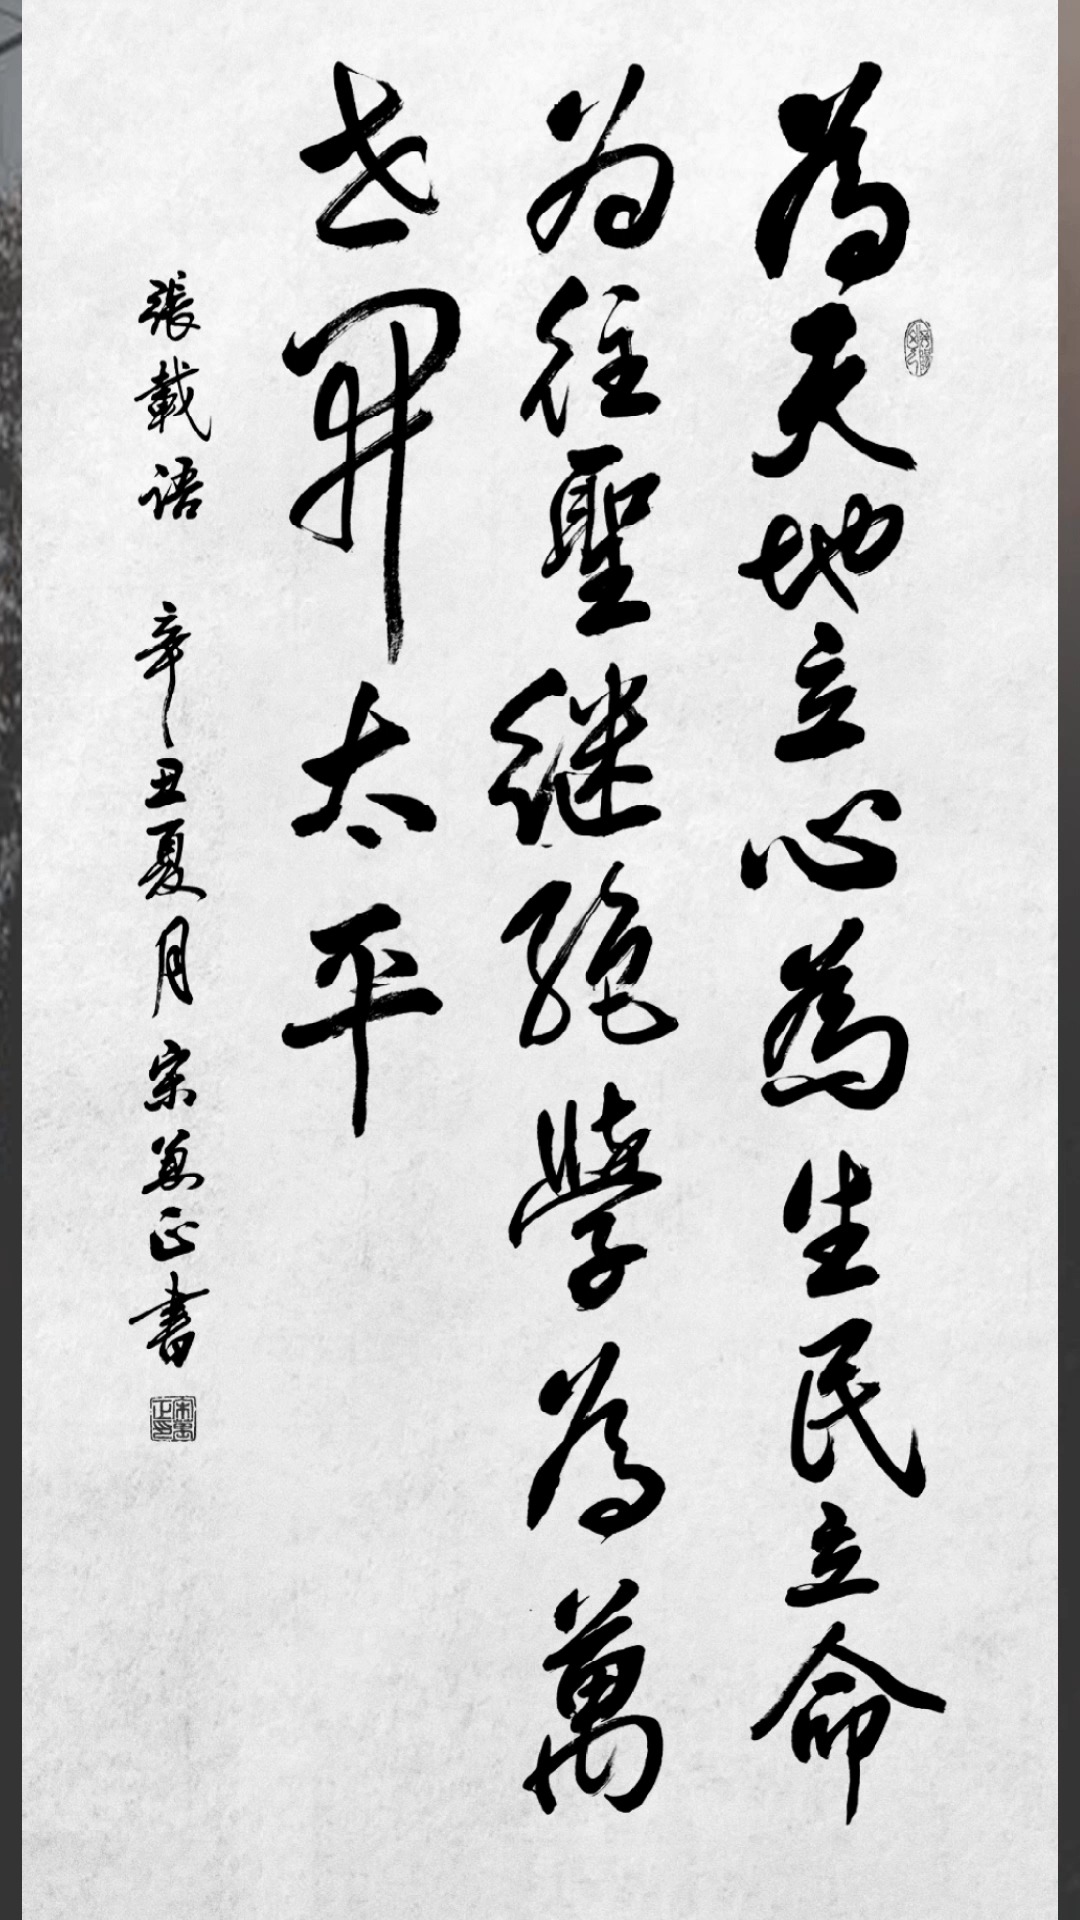 為天地立心為生民立命
为往聖继绝學為萬
世开太平
張載语 辛丑夏月宋万正書